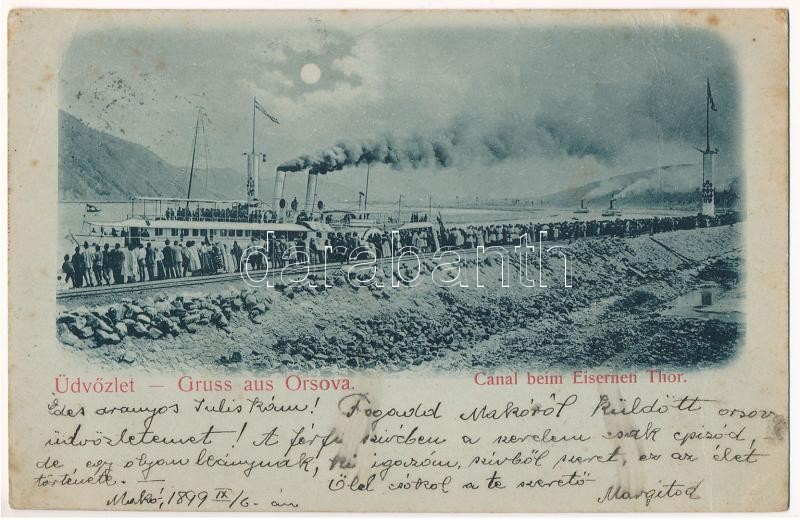 darabanth
Üdvőzlet – Gruss aus Orsova.
Canal beim Eisernen Thor.
Édes aranyos Juliskám! Fogadd Makóról küldött orsovai
üdvözletemet! A férfi szivében a szerelem csak epizód,
de egy olyan leánynak, ki igazán, szívből szeret, ez az élet
története. –
Öled csókol a te szerető
Makó, 1899 IX/6.-án
Margitod